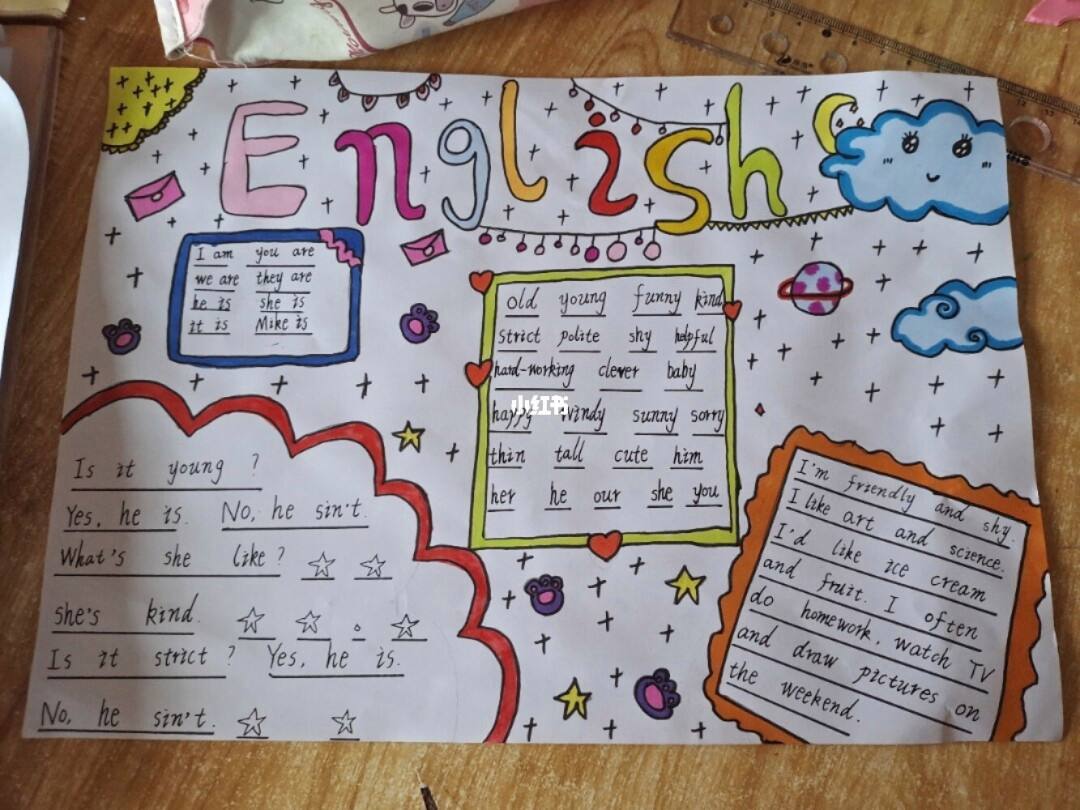 English
I am you are
we are they are
he is she is
it is Mike is
old young funny kind
strict polite shy helpful
hard-working clever baby
happy windy sunny sorry
thin tall cute him
her he our she you
小红书
Is it young ?
Yes, he is. No, he sin't.
What's she like ?
She's kind.
Is it strict ? Yes, he is.
No, he sin't.
I'm friendly and shy.
I like art and science.
I'd like ice cream
and fruit. I often
do homework, watch TV
and draw pictures on
the weekend.